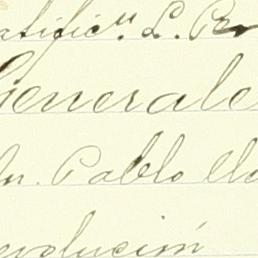 atificn L. Pr
Generale
Dn. Pablo Ma
evolución